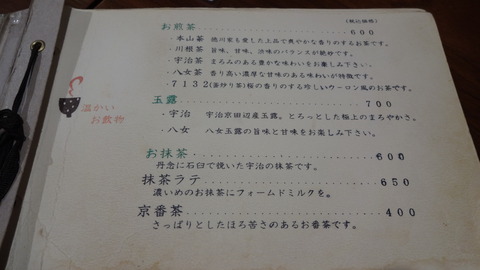 (税込価格)
お煎茶 600
・本山茶 徳川家も愛した上品で爽やかな香りのするお茶です。
・川根茶 旨味、甘味、渋味のバランスが絶妙です。
・宇治茶 まろみのある豊かな味わいをお楽しみ下さい。
・八女茶 香り高い濃厚な甘味のある味わいが特徴です。
・7132(釜炒り茶)桜の香りのする珍しいウーロン風のお茶です。
温かい
お飲物
玉露 700
・宇治 宇治京田辺産玉露。とろっとした極上のまろやかさ。
・八女 八女玉露の旨味と甘味をお楽しみ下さい。
お抹茶 600
丹念に石臼で挽いた宇治の抹茶です。
抹茶ラテ 650
濃いめのお抹茶にフォームドミルクを。
京番茶 400
さっぱりとしたほろ苦さのあるお番茶です。